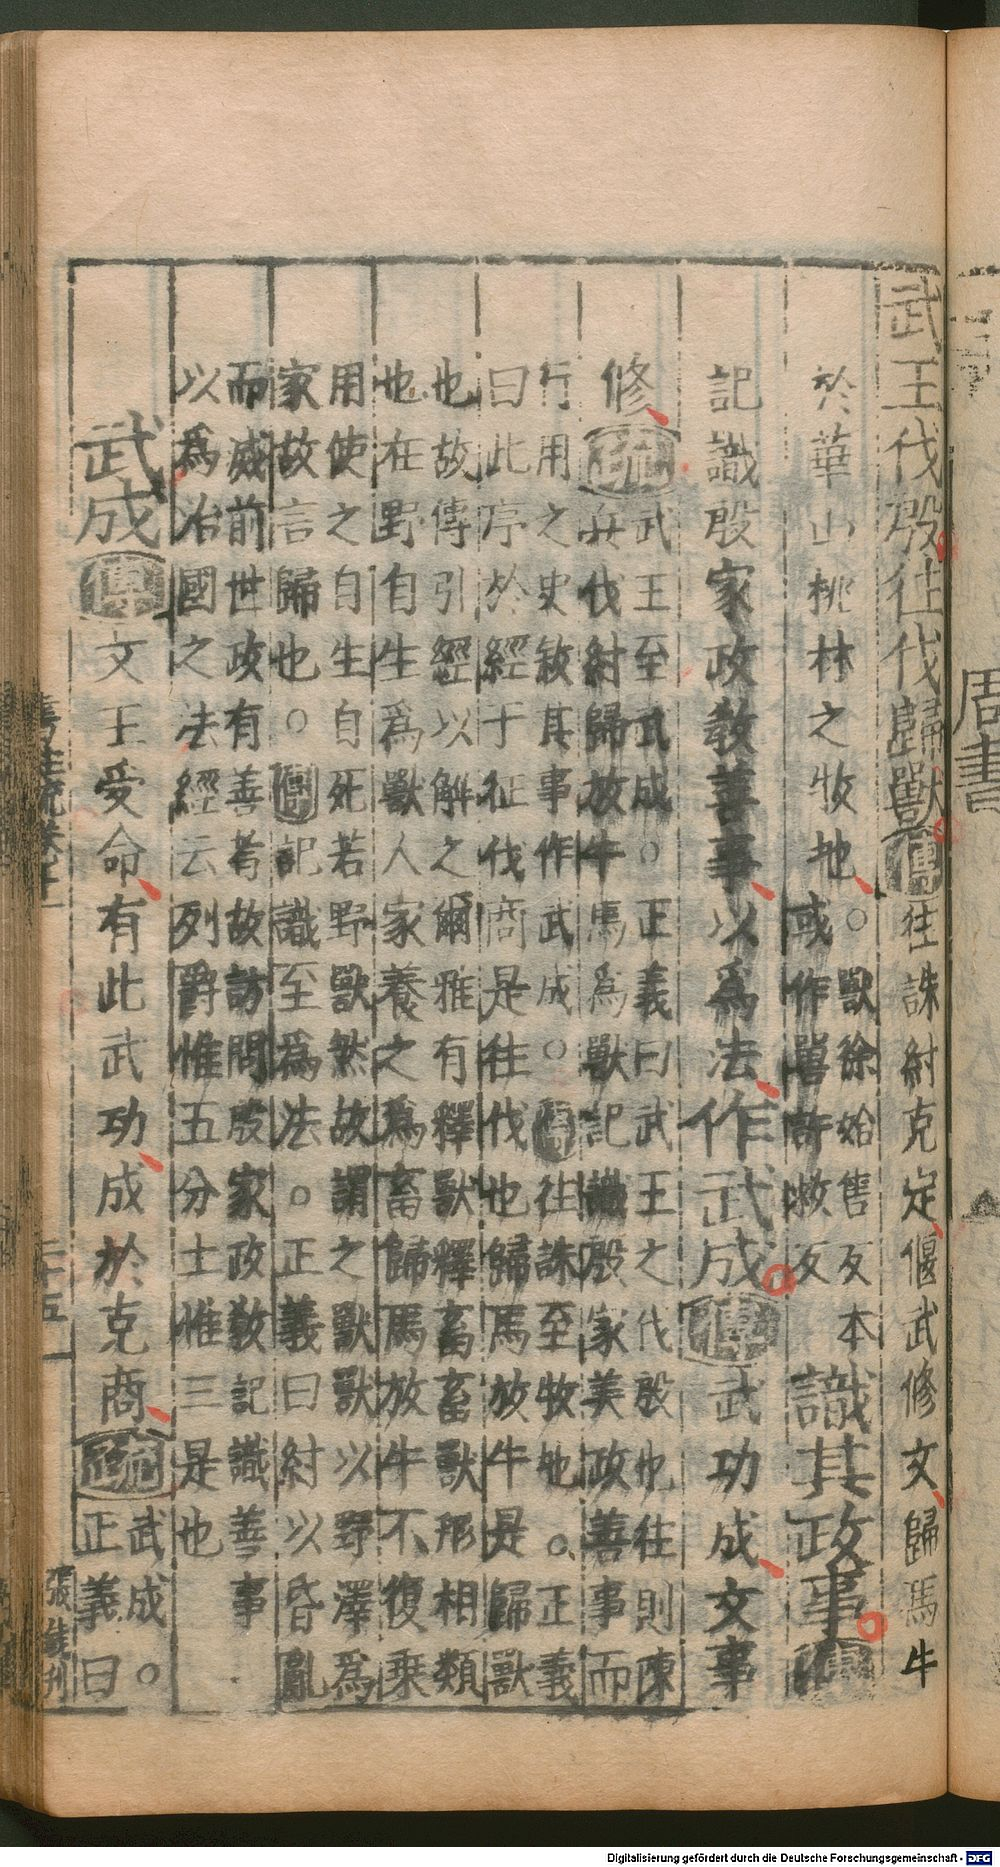 周書
武王伐殷往伐歸獸傳往誅紂克定偃武修文歸馬牛
於華山桃林之牧地○獸徐始售反本
或作嘼許救反
識其政事傳
記識殷家政教善事以為法作武成傳武功成文事
修疏武王至武成○正義曰武王之伐殷也往則陳
兵伐紂歸放牛馬為獸記識殷家美政善事而
行用之史敘其事作武成○傳往誅至牧地○正義
曰此序於經于征伐商是往伐也歸馬放牛是歸獸
也故傳引經以解之爾雅有釋獸釋畜畜獸形相類
也在野自生為獸人家養之為畜歸馬放牛不復乘
用使之自生自死若野獸然故謂之獸獸以野澤為
家故言歸也○傳記識至為法○正義曰紂以昏亂
而威前世政有善者故訪問殷家政教記識善事
以為治國之法經云列爵惟五分土惟三是也
武成傳文王受命有此武功成於克商疏武成○
正義曰
書注疏卷十一
二十五
刊
Digitalisierung gefördert durch die Deutsche Forschungsgemeinschaft - DFG